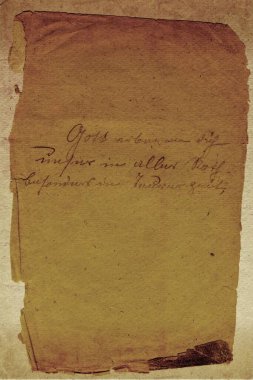 Gott erbarme dich
unser in aller Noth
besonders in